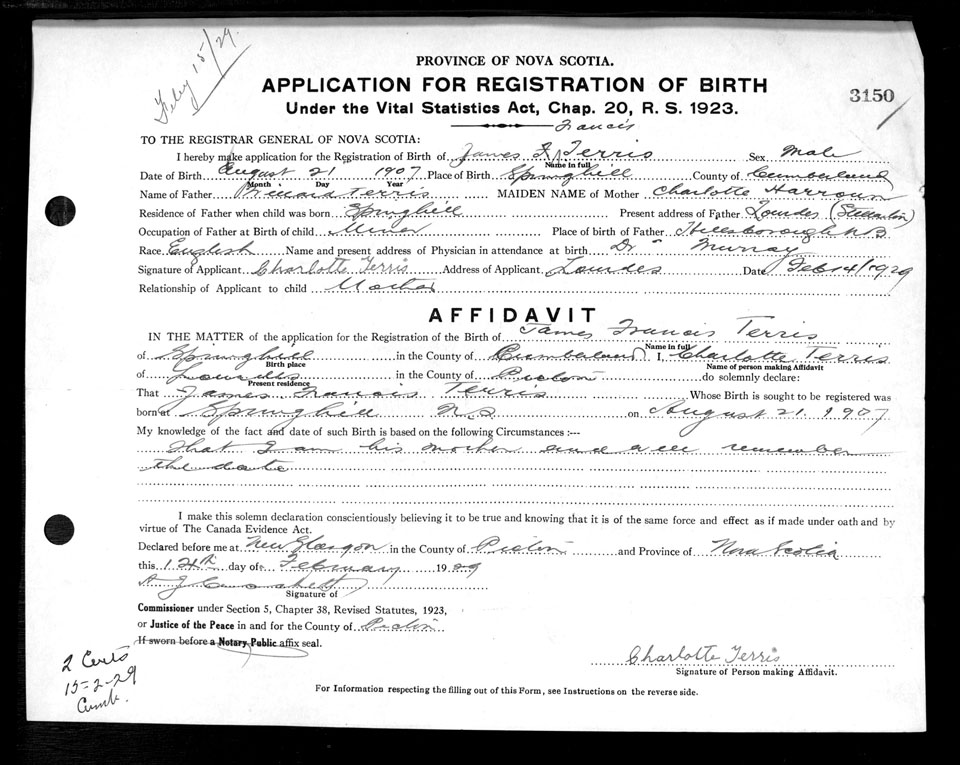 Feby 15/29.
PROVINCE OF NOVA SCOTIA.
APPLICATION FOR REGISTRATION OF BIRTH
3150
Under the Vital Statistics Act, Chap. 20, R. S. 1923.
Francis
TO THE REGISTRAR GENERAL OF NOVA SCOTIA:
I hereby make application for the Registration of Birth of James F. Terris Sex Male
Name in full
Date of Birth August 21 1907 Place of Birth Springhill County of Cumberland
Month Day Year
Name of Father Terris MAIDEN NAME of Mother Charlotte Harroun
Residence of Father when child was born Springhill Present address of Father Lourdes (Stellarton)
Occupation of Father at Birth of child Miner Place of birth of Father Hillsborough N.B.
Race English Name and present address of Physician in attendance at birth Dr Murray
Signature of Applicant Charlotte Terris Address of Applicant Lourdes Date Feb 14/1929
Relationship of Applicant to child Mother
AFFIDAVIT
IN THE MATTER of the application for the Registration of the Birth of James Francis Terris
Name in full
of Springhill in the County of Cumberland I, Charlotte Terris
Birth place Name of person making Affidavit
of Lourdes in the County of Pictou do solemnly declare:
Present residence
That James Francis Terris Whose Birth is sought to be registered was
born at Springhill N.S on August 21. 1907
My knowledge of the fact and date of such Birth is based on the following Circumstances :---
that I am his mother and well remember
the date
I make this solemn declaration conscientiously believing it to be true and knowing that it is of the same force and effect as if made under oath and by
virtue of The Canada Evidence Act.
Declared before me at New Glasgow in the County of Pictou and Province of Nova Scotia
this 14th day of February 1929
A J
Signature of
Commissioner under Section 5, Chapter 38, Revised Statutes, 1923,
or Justice of the Peace in and for the County of Pictou
If sworn before a Notary Public affix seal.
2 Certs
15-2-29
Cumb.
Charlotte Terris
Signature of Person making Affidavit.
For Information respecting the filling out of this Form, see Instructions on the reverse side.